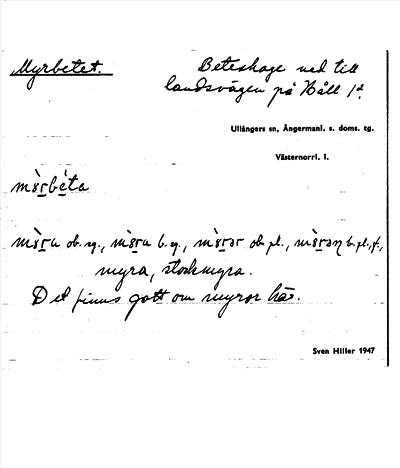 Myrbetet.
Beteshage ned till
landsvägen på Häll 1²
Ullångers sn, Ångermanl. s. doms. tg.
Västernorrl. l.
mỳrbéta
ob. sg., b. sg., ob. pl., b. pl., f.,
myra, stackmyra.
Det finns gott om myror här.
Sven Hiller 1947